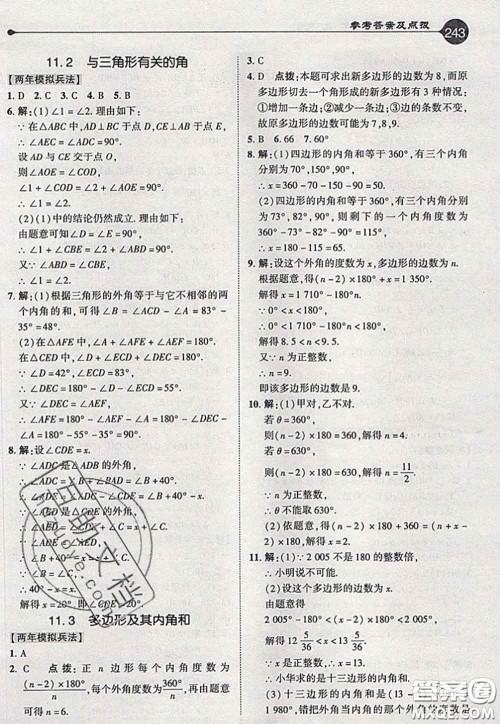 参考答案及点拨 243
11.2 与三角形有关的角
【两年模拟兵法】
1. D 2. C 3. C 4. B 5. B
6. 解：(1)∠1=∠2. 理由如下：
∵在△ABC中,AD⊥BC于点D,
CE⊥AB于点E,
∴∠AEC=∠ADC=90°.
设AD与CE交于点O,
则∠AOE=∠COD,
∠1+∠COD=∠2+∠AOE=90°.
∴∠1=∠2.
(2)(1)中的结论仍然成立. 理由如下：
由题意可知∠D=∠E=90°,
∠1+∠CBE=∠2+∠ABD=90°.
又∵∠ABD=∠CBE,
∴∠1=∠2.
7. 解：(1)根据三角形的外角等于与它不相邻的两
个内角的和,可得∠B=∠ACD-∠A=83°-
35°=48°.
(2)在△AFE中,∠AFE=∠D+∠ECD,
在△CED中,∠D+∠ECD+∠CED=180°,
∵∠D=42°,∠ECD=83°,
∴∠CED=55°.
又∵∠AEF=∠CED,∴∠AEF=55°.
∴∠AFE=180°-∠A-∠AEF=180°-
35°-55°=90°.
8. 解：设∠CDE=x.
∵∠ADC是△ADB的外角,
∴∠ADC=∠B+∠BAD=∠B+40°.
∵∠ADE=∠ADC-∠CDE=∠B+40°-x,
∠AED是△CDE的外角,
∴∠AED=∠C+x.
∵∠ADE=∠AED,
∴∠B+40°-x=∠C+x.
∵∠B=∠C,
∴40°-x=x.
解得x=20°. 即∠CDE=20°.
11.3 多边形及其内角和
【两年模拟兵法】
1. A
2. C 点拨：正n边形每个内角度数为
(n-2)×180°/n, 每个外角度数为 360°/n. 由题意
可得n=6.
3. C
4. D 点拨：本题可求出新多边形的边数为8,而原
多边形切去一个角得到新多边形有3种情况：
①边数增加1;②边数减少1;③边的条数不变,
故原多边形的边数可能为7,8,9.
5. B 6. 66 7. 60°
8. 解：(1)四边形的内角和等于360°,将四个内角
分别转化为360°,90°,90°,50°,
∴x=360-70-150-90=50.
(2)四边形的内角和等于360°,将四个内角
分别转化为180°-x°,90°,73°,82°,则剩下的内角度数为
360°-73°-82°-90°=115°.
∴x=180-115=65.
9. 解：设这个多边形的边数为n.
根据题意,得(n-2)×180°+x=1350°.
解得x=1710°-180°n.
∵0°<x<180°,
∴0°<1710°-180°n<180°.
解得8.5<n<9.5.
又∵n为正整数,
∴n=9.
即该多边形的边数是9.
10. 解：(1)甲对,乙不对.
若θ=360°,
则(n-2)×180=360,解得n=4.
若θ=630°,
则(n-2)×180=630,解得n=11/2.
∵n为正整数,
∴θ不能取630°.
(2)依题意,得(n-2)×180+360=(n+x-
2)×180,
解得x=2.
11. 解：(1)∵2005不是180的倍数,
∴小明说不可能.
(2)设这个多边形的边数为n.
由题意得
2005°-180°<(n-2)×180°<2005°.
解得12 5/36<n<13 5/36.
∵n为正整数,∴n=13.
∴小华求的是十三边形的内角和.
(3)十三边形的内角和是(13-2)×180°=
1980°,因此这个错把外角当内角的度数为